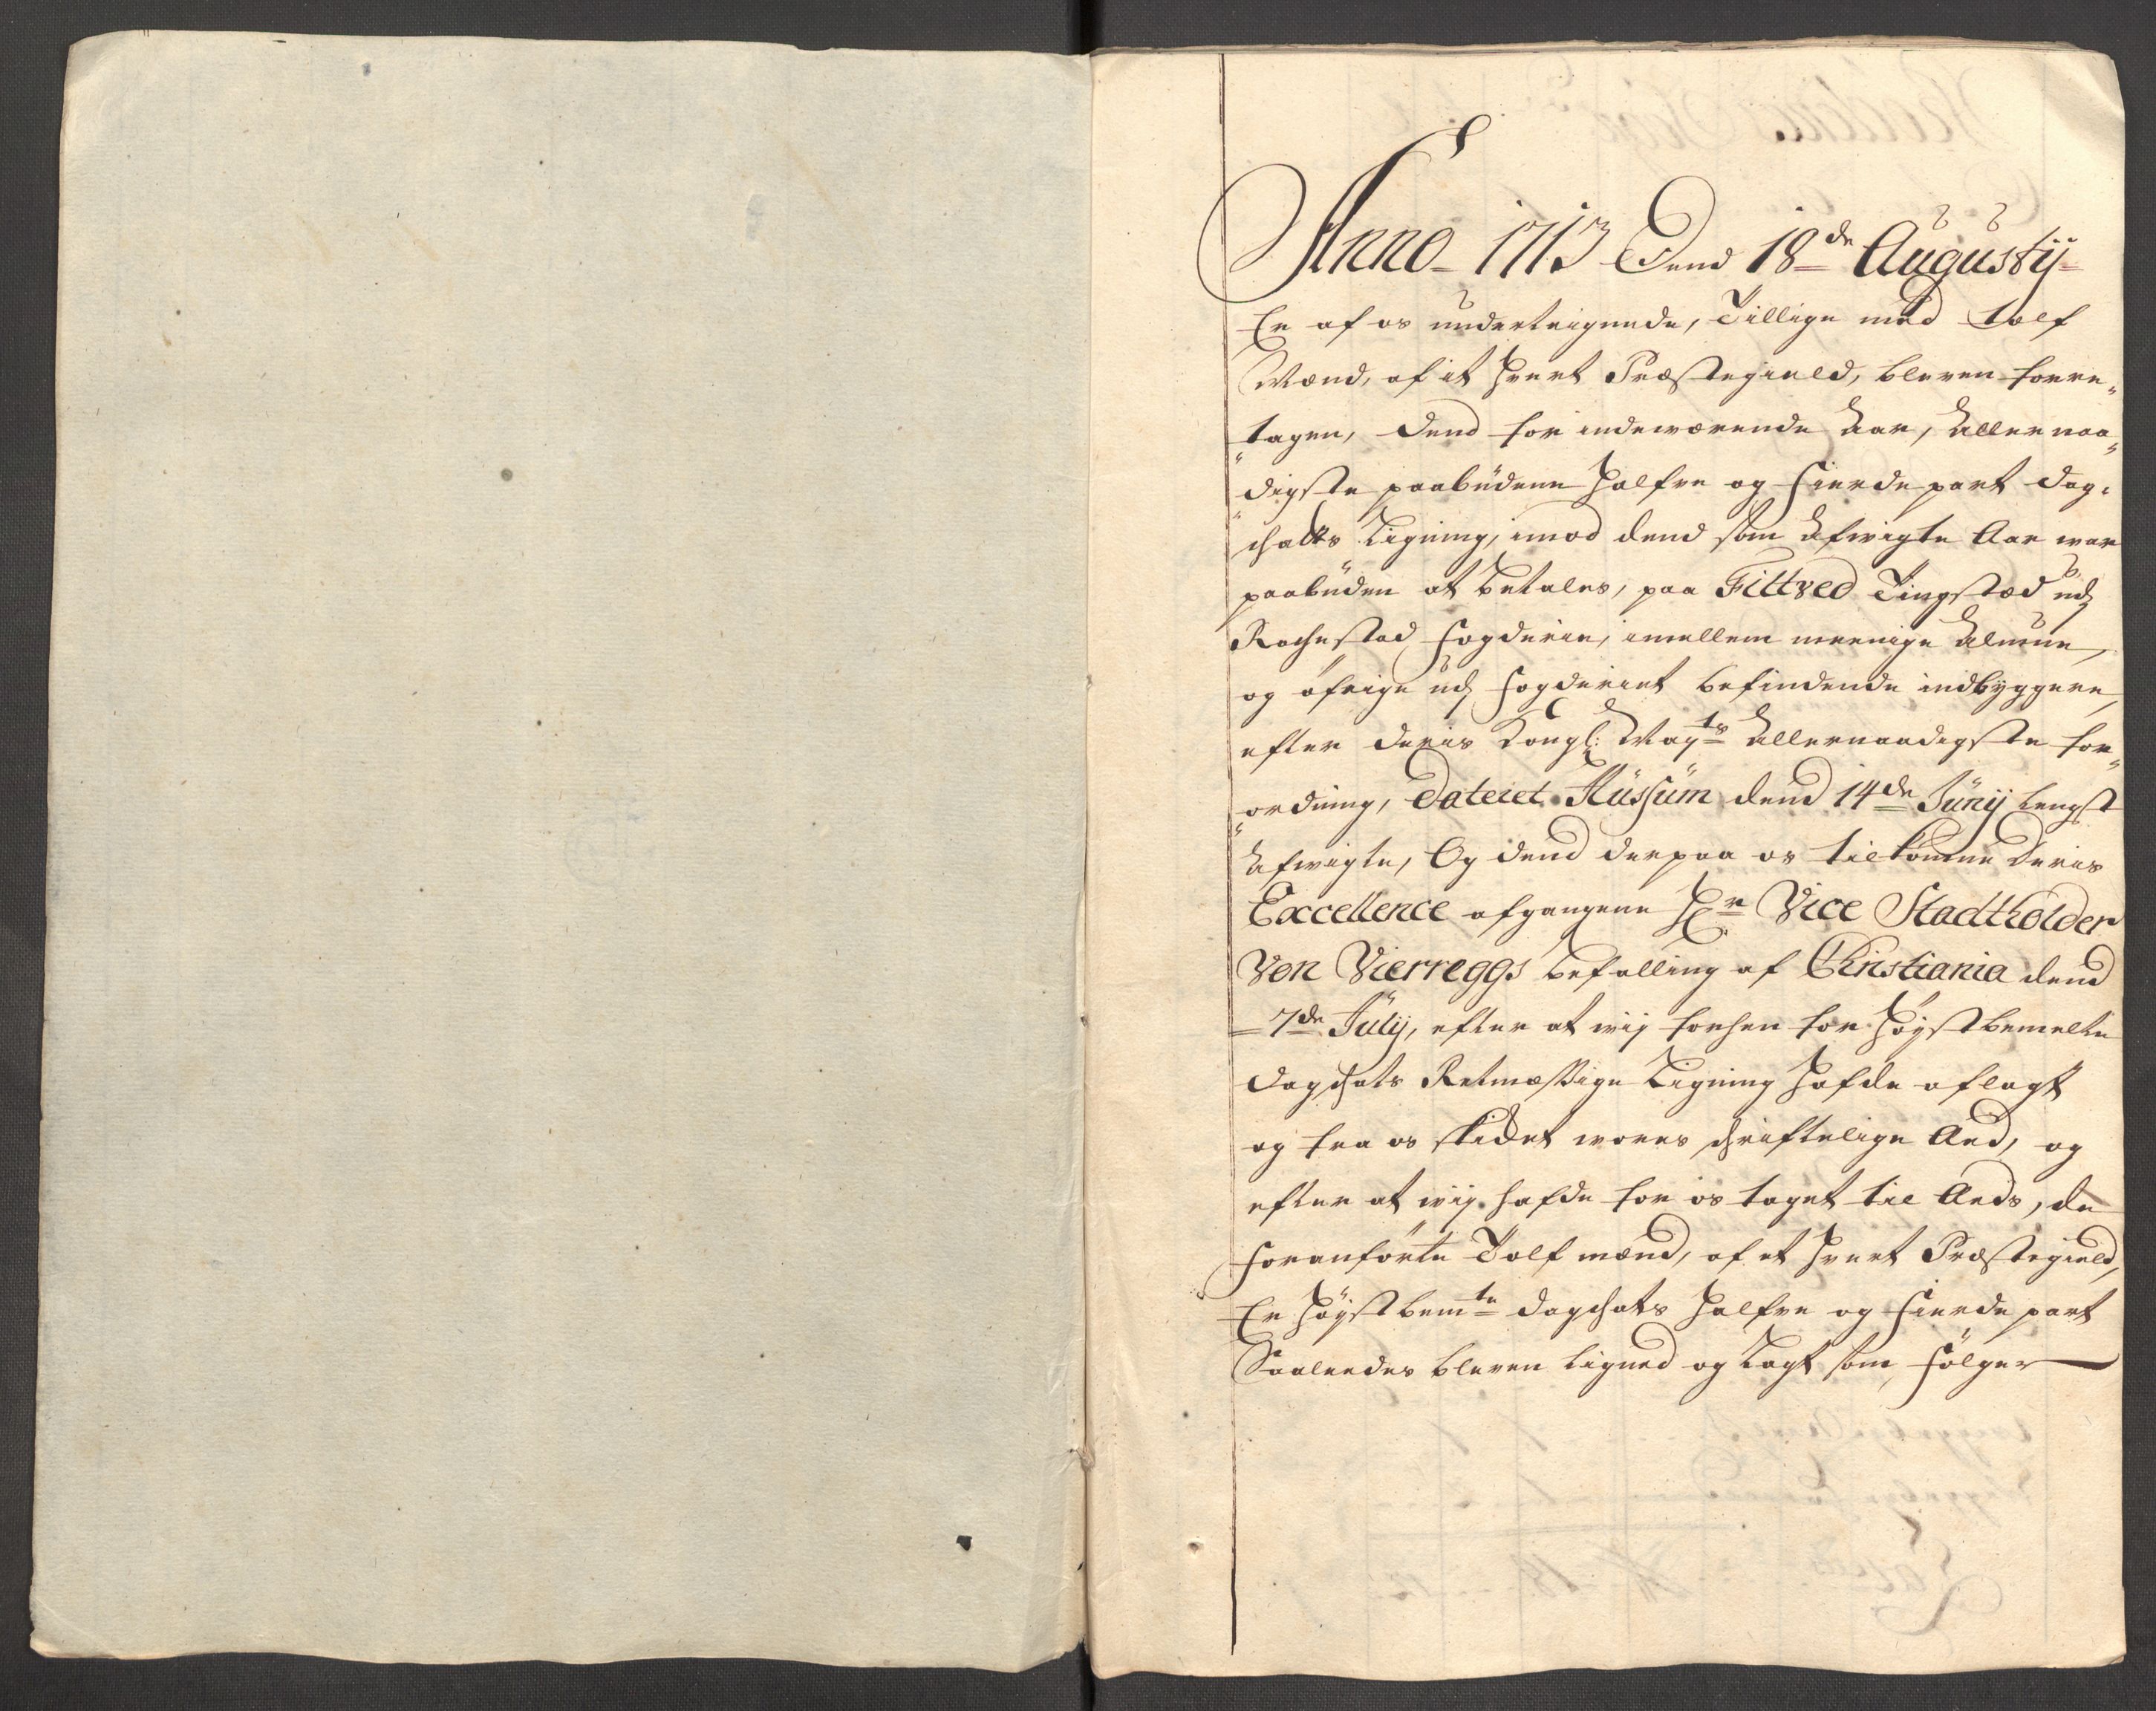 Anno 1713 Dend 18de Augustij
Er af os underteignede, Tillige med tolf
Mænd, af it hvert Præstegield, bleven forre„
„tagen, dend for indeværende Aar, Allernaa„
„digste paabudene halfve og fierde part dag„
„schatts Ligning, imod dend som Afvigte Aar var
paabuden at betales, paa Tingstæd udj
fogderie, imellem meenige Almue,
og öfrige udj fogderiet befindende indbyggere,
efter deris Kongl: Mayts Allernaadigste for„
„ordning, Dateret Hüssüm dend 14de Junij Lengst
Afvigte, Og dend derpaa os tilkomne Deris
Excellence afgangene Hr Vice Stadtholder
Von Vierreggs befalling af Christiania dend
7de Julij, efter at wij forhen for höystbemelte
dagschats Retmæssige Ligning hafde aflagt
og fra os skidet vores schriftelige Aed, og
efter at wij hafde for os taget til Aeds, de
foranförte Tolf mænd, af et hvert Præstegield,
Er höystbemte dagschats halfve og fierde part
Saaleedes bleven lignet og Lagt som fölger